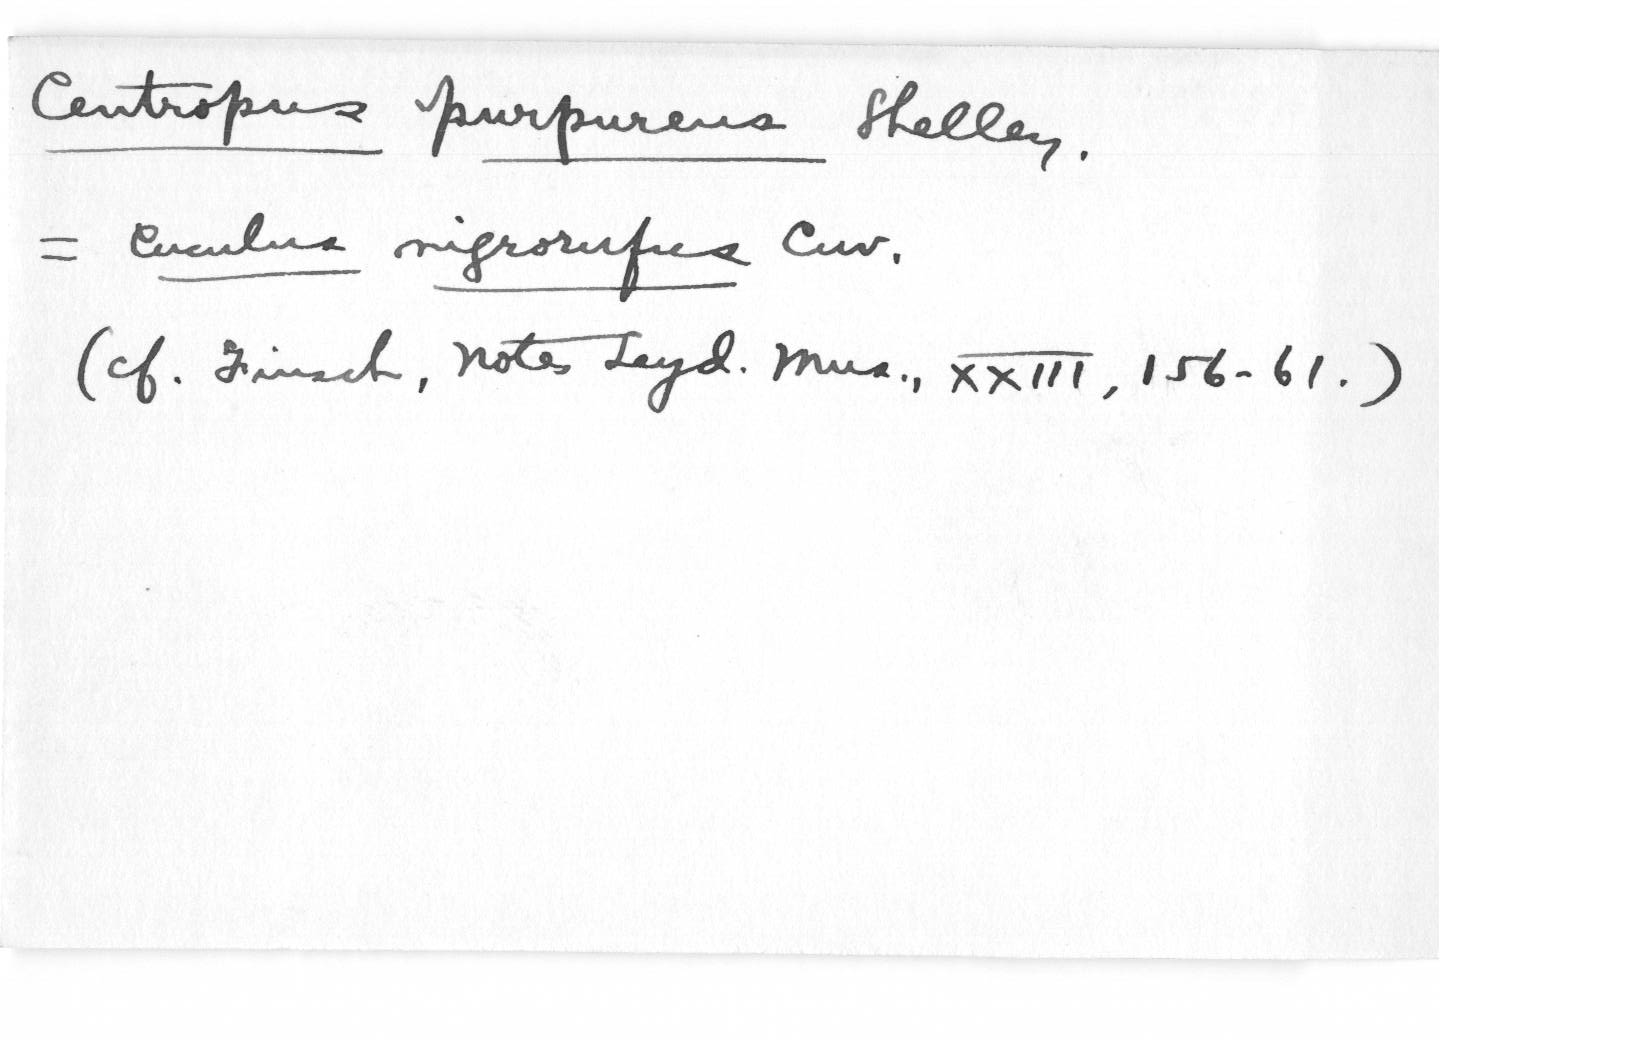 Centropus purpureus Shelley.
= Cuculus nigrorufus Cuv.
(cf. Finsch, Notes Leyd. Mus., XXIII, 156-61.)